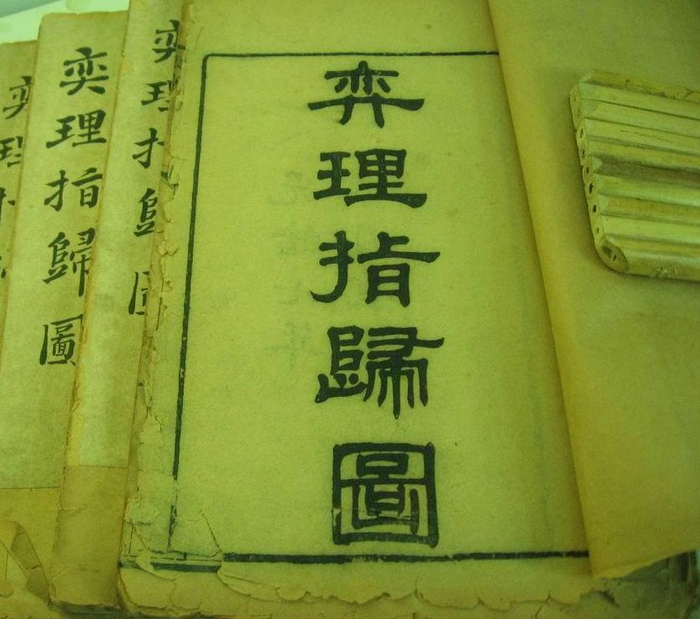 弈理指歸圖
奕理指歸圖
奕理指歸圖
奕理指